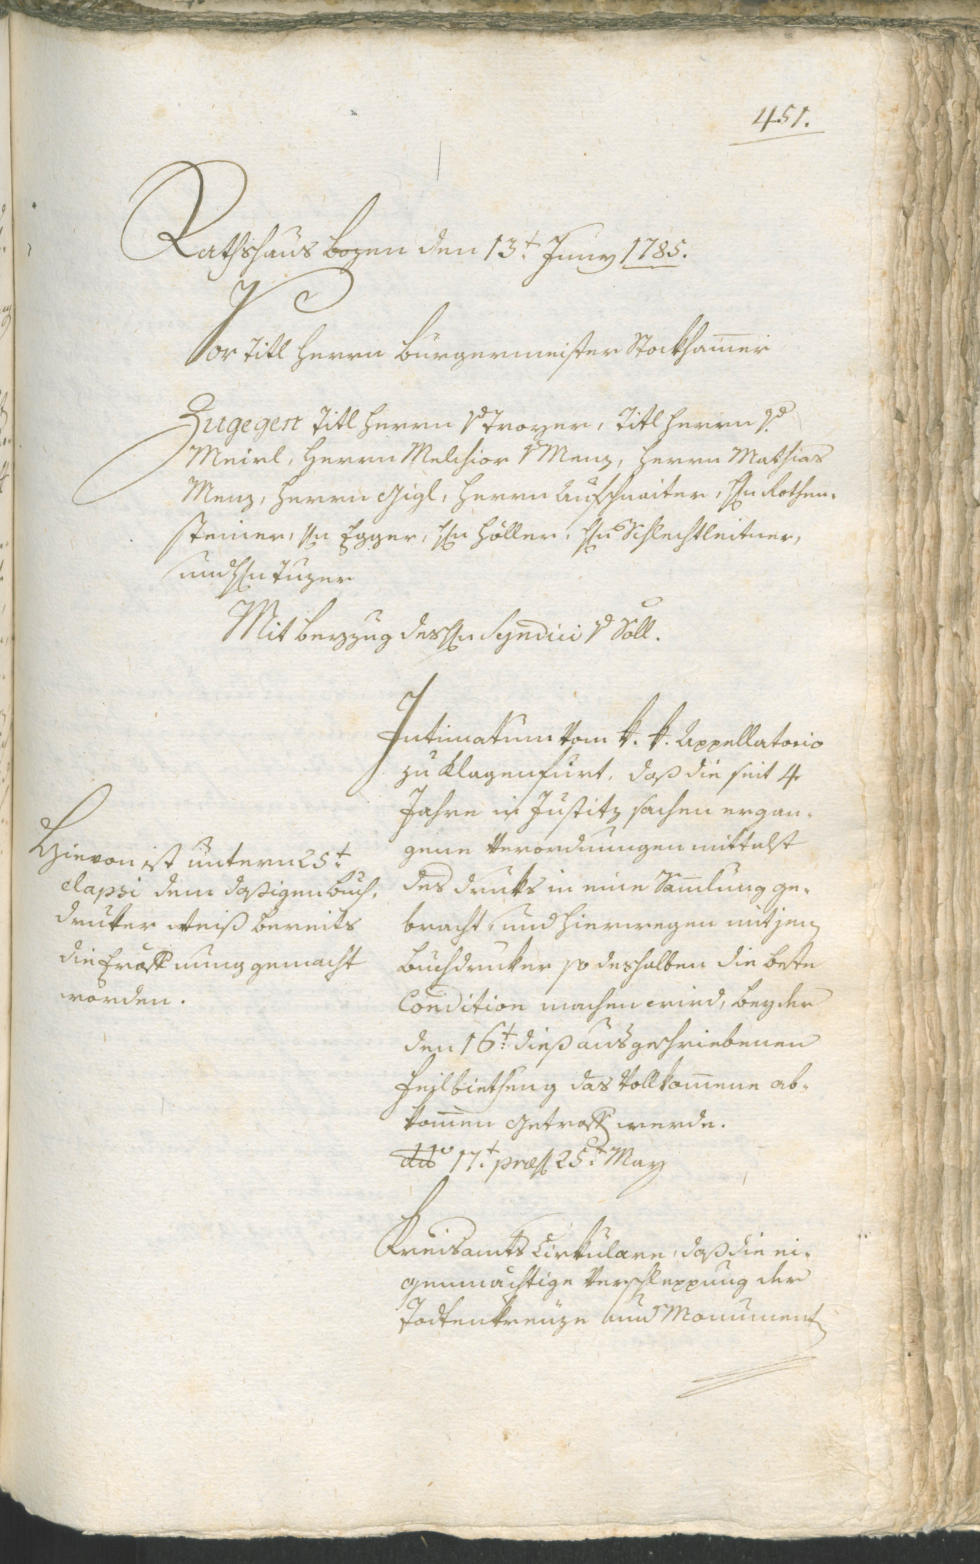 451.
Rathshaus Bozen den 13.t Juny 1785.
Vor Titl Herrn Bürgermeister Stockhamer
Zugegen Titl Herrn v Troyer, Titl Herrn v.
Meirl, Herrn Melchior v Menz, Herrn Mathias
Menz, Herrn Gigl, Herrn Aufschnaiter, Hn Rothen-
steiner, Hn Egger, Hn Höller, Hn Schlechtleitner,
und Hn Tuzer
Mit Beyzug des Hn Syndici v Söll.
Intimatum vom k. k. Appellatorio
zu Klagenfurt, daß die seit 4
Jahre in Justitz sachen ergan-
gene Verordnungen mittelst
des druks in eine Samlung ge-
bracht, und hierwegen mit jen
Buchdruker so deshalben die beste
Condition machen wird, bey der
den 16.t dieß ausgeschriebenen
Feilbiethung das Vollkomene ab-
komen getroffen werde.
ddo 17.t præs 25.t May
Hievon ist untern 25.t
elapsi dem daßigen Buch-
druker Weiß bereits
die Eröffnung gemacht
worden.
Kreisamts Cirkulare, daß die ei-
genmächtige Verschleppung der
Todtenkreuze und Monumenten